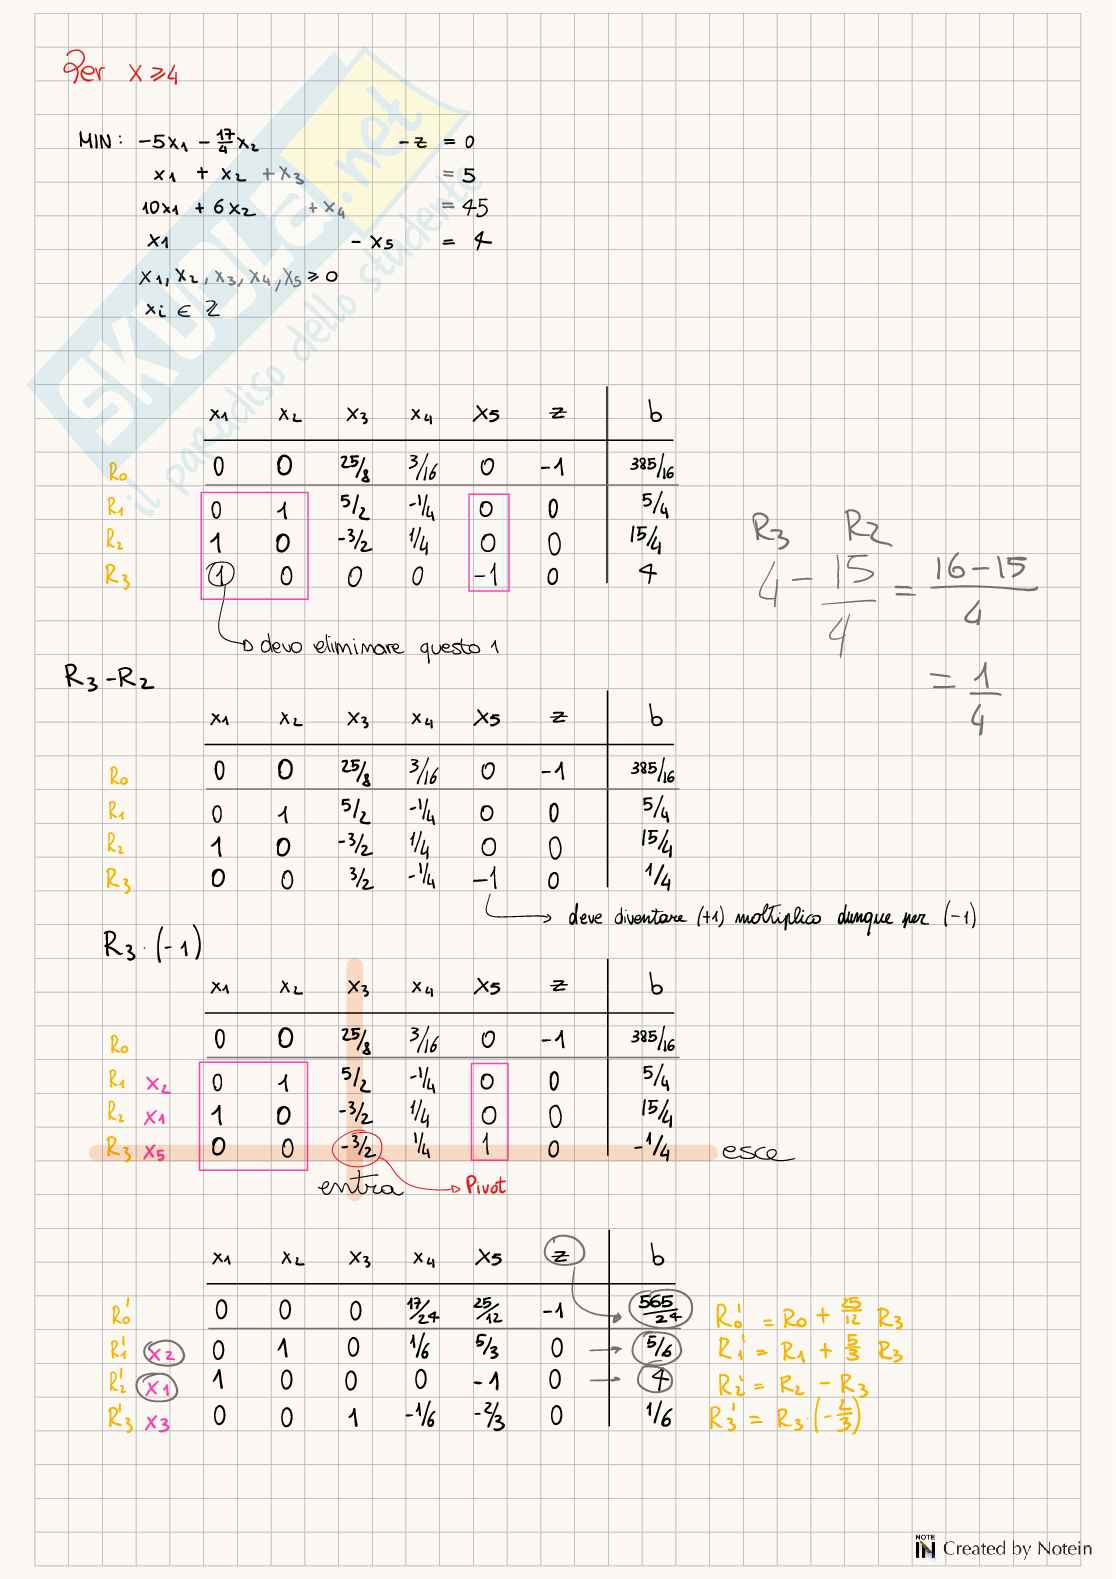 Per x ≥ 4
MIN: -5x1 - 17/4 x2 - z = 0
x1 + x2 + x3 = 5
10x1 + 6x2 + x4 = 45
x1 - x5 = 4
x1, x2, x3, x4, x5 ≥ 0
xi ∈ Z
SKUOLA.net
il paradiso dello studente
x1 x2 x3 x4 x5 z b
R0 0 0 25/8 3/16 0 -1 385/16
R1 0 1 5/2 -1/4 0 0 5/4
R2 1 0 -3/2 1/4 0 0 15/4
R3 1 0 0 0 -1 0 4
devo eliminare questo 1
R3 R2
4 - 15/4 = 16-15/4
= 1/4
R3 - R2
x1 x2 x3 x4 x5 z b
R0 0 0 25/8 3/16 0 -1 385/16
R1 0 1 5/2 -1/4 0 0 5/4
R2 1 0 -3/2 1/4 0 0 15/4
R3 0 0 3/2 -1/4 -1 0 1/4
deve diventare (+1) moltiplico dunque per (-1)
R3 · (-1)
x1 x2 x3 x4 x5 z b
R0 0 0 25/8 3/16 0 -1 385/16
R1 x2 0 1 5/2 -1/4 0 0 5/4
R2 x1 1 0 -3/2 1/4 0 0 15/4
R3 x5 0 0 -3/2 1/4 1 0 -1/4 esce
entra Pivot
x1 x2 x3 x4 x5 z b
R0' 0 0 0 17/24 25/12 -1 565/24 R0' = R0 + 25/12 R3
R1' x2 0 1 0 1/6 5/3 0 5/6 R1' = R1 + 5/3 R3
R2' x1 1 0 0 0 -1 0 4 R2' = R2 - R3
R3' x3 0 0 1 -1/6 -2/3 0 1/6 R3' = R3 · (-2/3)
NOTE IN Created by Notein